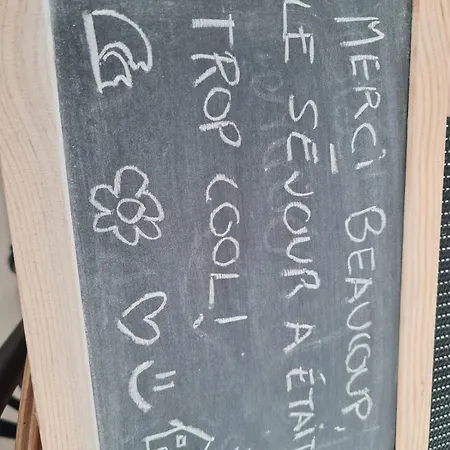 MERCI BEAUCOUP!
LE SÉJOUR A ÉTAIT
TROP COOL!